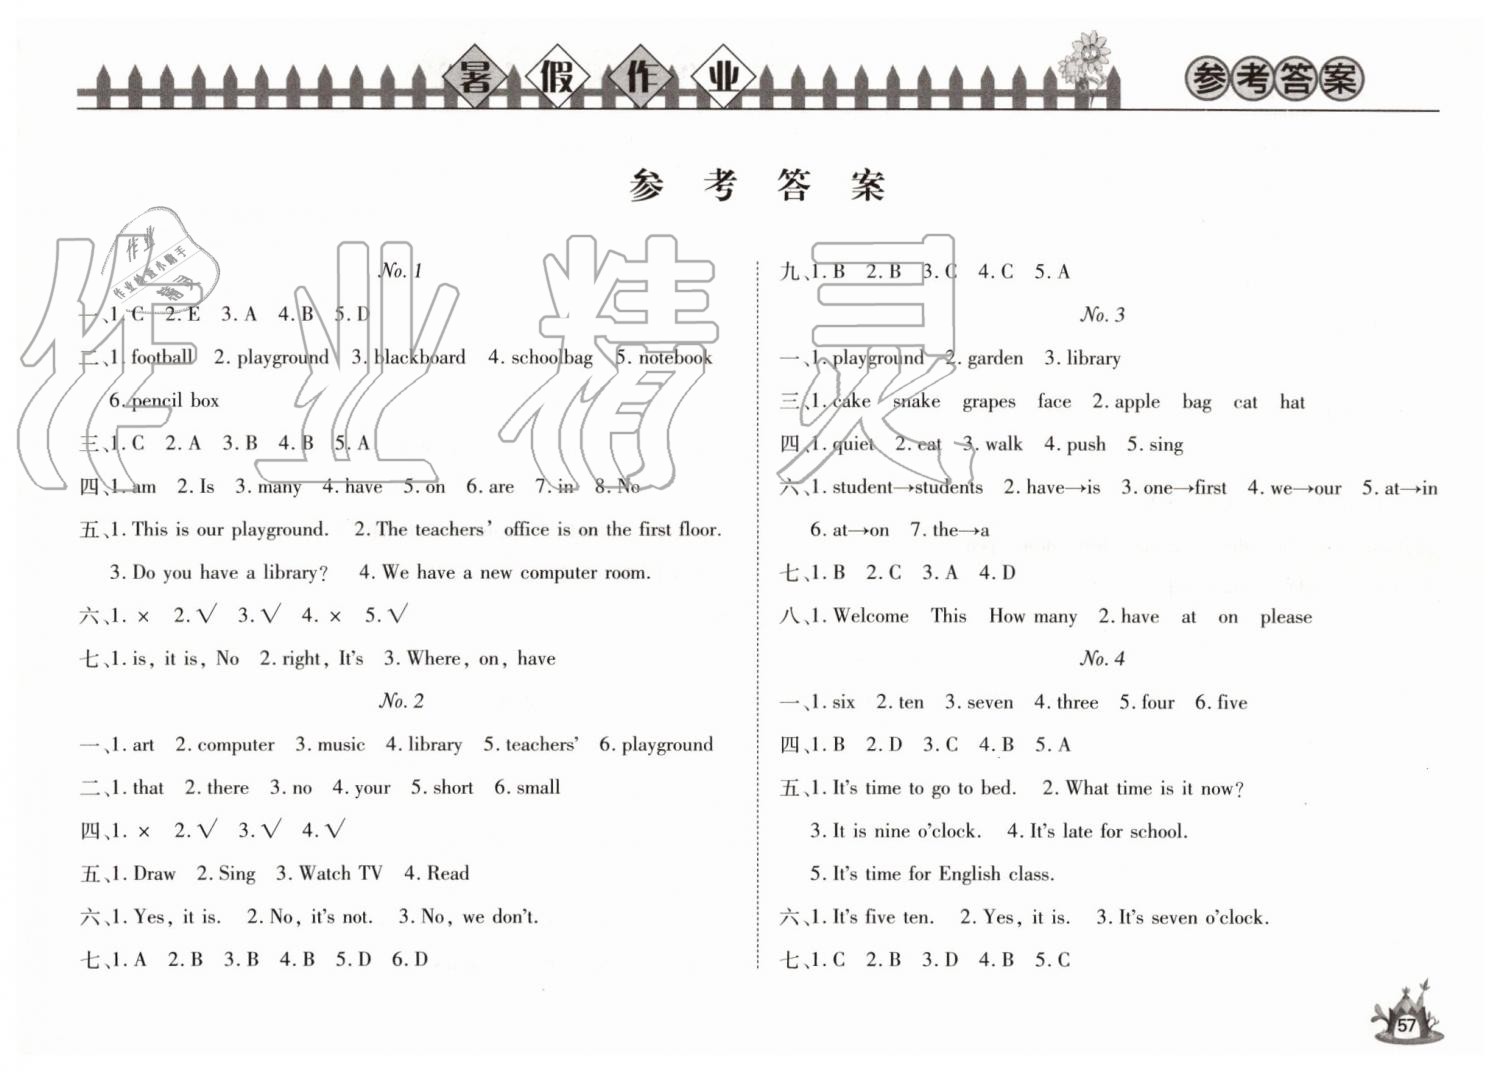 暑假作业
参考答案
参考答案
No. 1
一、1. C 2. E 3. A 4. B 5. D
二、1. football 2. playground 3. blackboard 4. schoolbag 5. notebook
6. pencil box
三、1. C 2. A 3. B 4. B 5. A
四、1. am 2. Is 3. many 4. have 5. on 6. are 7. in 8. No
五、1. This is our playground. 2. The teachers' office is on the first floor.
3. Do you have a library? 4. We have a new computer room.
六、1. × 2. √ 3. √ 4. × 5. √
七、1. is, it is, No 2. right, It's 3. Where, on, have
No. 2
一、1. art 2. computer 3. music 4. library 5. teachers' 6. playground
二、1. that 2. there 3. no 4. your 5. short 6. small
四、1. × 2. √ 3. √ 4. √
五、1. Draw 2. Sing 3. Watch TV 4. Read
六、1. Yes, it is. 2. No, it's not. 3. No, we don't.
七、1. A 2. B 3. B 4. B 5. D 6. D
九、1. B 2. B 3. C 4. C 5. A
No. 3
一、1. playground 2. garden 3. library
三、1. cake snake grapes face 2. apple bag cat hat
四、1. quiet 2. eat 3. walk 4. push 5. sing
六、1. student→students 2. have→is 3. one→first 4. we→our 5. at→in
6. at→on 7. the→a
七、1. B 2. C 3. A 4. D
八、1. Welcome This How many 2. have at on please
No. 4
一、1. six 2. ten 3. seven 4. three 5. four 6. five
四、1. B 2. D 3. C 4. B 5. A
五、1. It's time to go to bed. 2. What time is it now?
3. It is nine o'clock. 4. It's late for school.
5. It's time for English class.
六、1. It's five ten. 2. Yes, it is. 3. It's seven o'clock.
七、1. C 2. B 3. D 4. B 5. C
57
作业精灵
作业
作业检查小助手
精灵